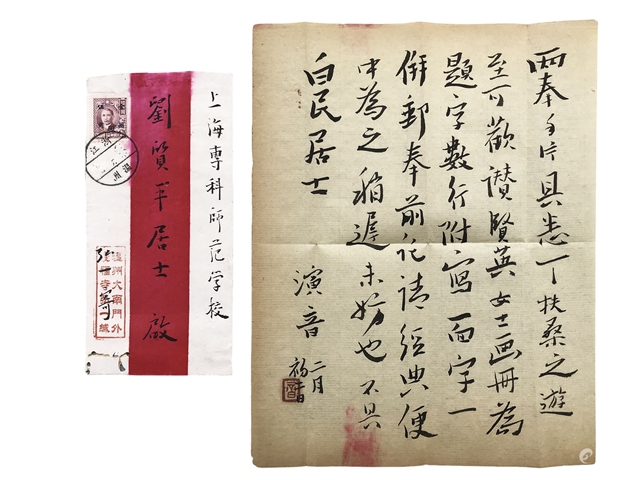 上海專科師范学校
劉質平居士 啟
浙江
溫州
溫州大南門外
慶福寺緘
兩奉手片具悉 扶桑之遊
至可歡讚賢英女士画冊為
題字數行附寫一面字一
併郵奉前託請经典便
中為之稽遲未妨也不具
白民居士
演音 二月
初十日
音